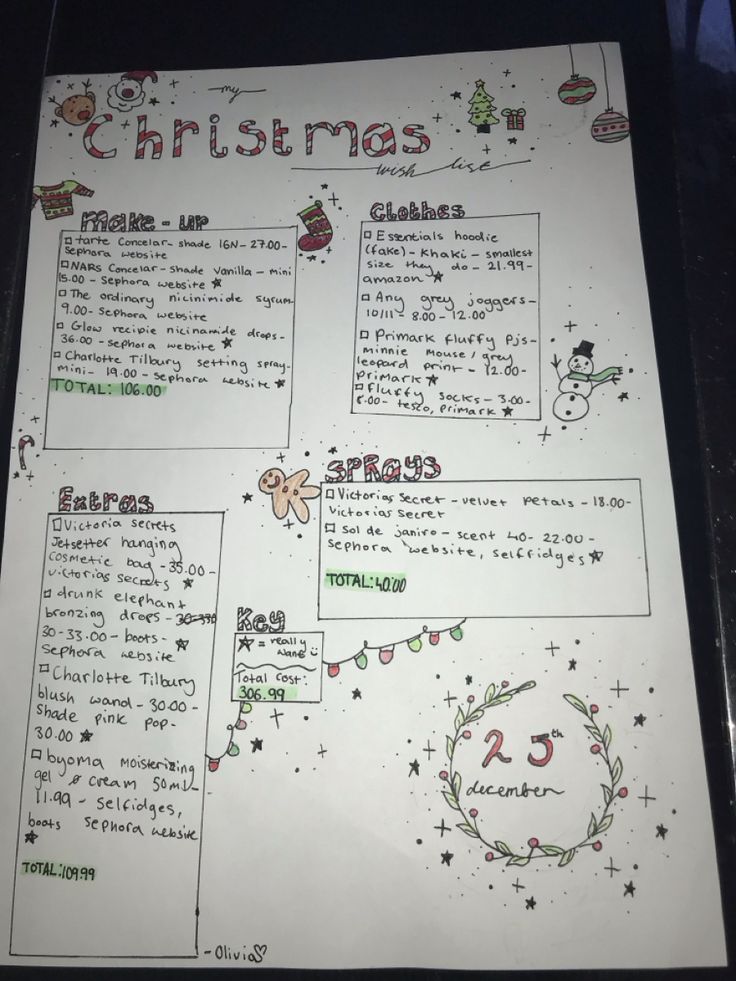 my
Christmas
wish list
Make-up
tarte Concelar - shade 16N - 27.00-
Sephora website
NARS Concelar - shade vanilla - mini
15.00 - Sephora website
The ordinary nicinimide syrum-
9.00- Sephora website
Glow recipie nicinamide drops-
36.00 - Sephora website
Charlotte Tilbury setting spray-
mini - 19.00 - Sephora website
TOTAL: 106.00
Clothes
Essentials hoodie
(fake) - khaki - smallest
size they do - 21.99-
amazon
Any grey joggers-
10/11 - 8.00 - 12.00
Primark fluffy pjs-
minnie mouse / grey
leopard print - 12.00-
Primark
fluffy socks - 3.00-
8.00 - tesco, primark
Sprays
Victorias Secret - velvet petals - 18.00-
Victorias secret
Sol de janiro - scent 40 - 22.00-
Sephora website, selfridges
TOTAL: 40.00
Extras
Victoria secrets
Jetsetter hanging
cosmetic bag - 35.00-
victorias secrets
drunk elephant
bronzing drops -
30-33.00 - boots-
Sephora website
Charlotte Tilbury
blush wand - 30.00-
shade pink pop-
30.00
byoma moisterizing
gel cream 50ml-
11.99 - selfidges,
boots Sephora website
TOTAL: 109.99
Key
= really
want
Total cost:
306.99
25th
december
- Olivia